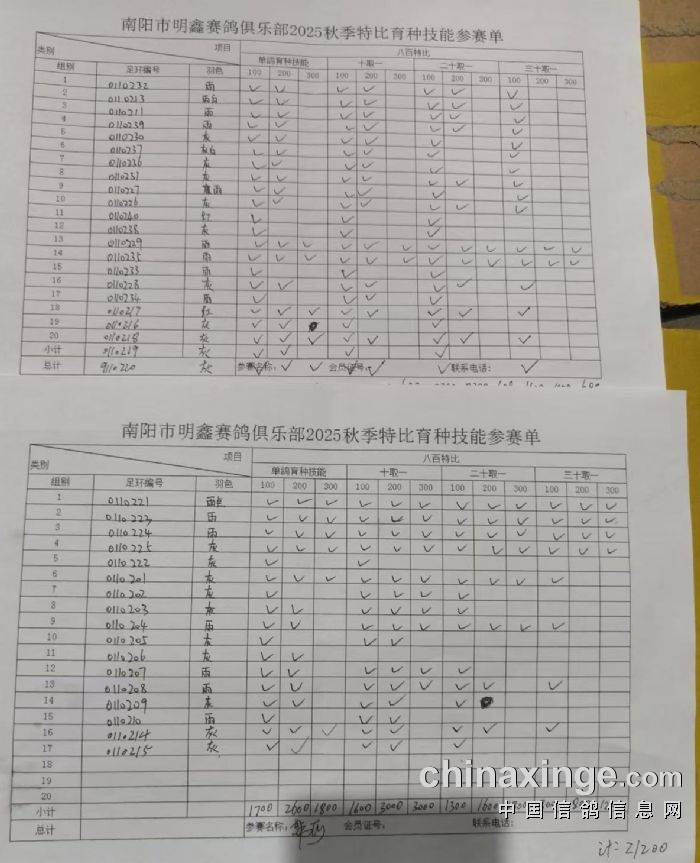 南阳市明鑫赛鸽俱乐部2025秋季特比育种技能参赛单
类别 项目 八百特比
单鸽育种技能 十取一 二十取一 三十取一
组别 足环编号 羽色 100 200 300 100 200 300 100 200 300 100 200 300
1 0110232 雨 ✓ ✓ ✓ ✓ ✓ ✓ ✓
2 0110213 雨白 ✓ ✓ ✓ ✓ ✓ ✓ ✓
3 0110211 雨 ✓ ✓ ✓ ✓ ✓ ✓ ✓
4 0110239 雨 ✓ ✓ ✓ ✓ ✓ ✓ ✓
5 0110230 灰 ✓ ✓ ✓ ✓ ✓ ✓
6 0110237 灰白 ✓ ✓ ✓ ✓ ✓ ✓
7 0110236 灰 ✓ ✓ ✓ ✓ ✓ ✓
8 0110231 灰 ✓ ✓ ✓ ✓ ✓ ✓ ✓
9 0110227 雨 ✓ ✓ ✓ ✓ ✓ ✓
10 0110226 灰 ✓ ✓ ✓ ✓ ✓ ✓ ✓
11 0110240 红 ✓ ✓ ✓
12 0110238 灰 ✓ ✓ ✓
13 0110229 雨 ✓ ✓ ✓ ✓ ✓ ✓ ✓ ✓ ✓ ✓ ✓ ✓
14 0110235 雨 ✓ ✓ ✓ ✓ ✓ ✓ ✓ ✓ ✓ ✓ ✓ ✓
15 0110233 雨 ✓ ✓ ✓
16 0110228 灰 ✓ ✓ ✓ ✓ ✓ ✓ ✓
17 0110234 雨 ✓ ✓ ✓
18 0110217 红 ✓ ✓ ✓ ✓ ✓ ✓ ✓
19 0110216 灰 ✓ ✓ ✓ ✓
20 0110218 灰 ✓ ✓ ✓ ✓ ✓ ✓ ✓ ✓
小计 0110219 灰 ✓ ✓ ✓ ✓
总计 0110220 灰 参赛名称: 会员证号: 联系电话:
南阳市明鑫赛鸽俱乐部2025秋季特比育种技能参赛单
类别 项目 八百特比
单鸽育种技能 十取一 二十取一 三十取一
组别 足环编号 羽色 100 200 300 100 200 300 100 200 300 100 200 300
1 0110221 雨 ✓ ✓ ✓ ✓ ✓ ✓ ✓ ✓ ✓ ✓ ✓ ✓
2 0110223 雨 ✓ ✓ ✓ ✓ ✓ ✓ ✓ ✓ ✓ ✓ ✓ ✓
3 0110224 雨 ✓ ✓ ✓ ✓ ✓ ✓ ✓ ✓ ✓ ✓ ✓ ✓
4 0110225 灰 ✓ ✓ ✓ ✓ ✓ ✓ ✓ ✓ ✓ ✓ ✓ ✓
5 0110222 灰 ✓ ✓
6 0110201 灰 ✓ ✓ ✓ ✓ ✓ ✓ ✓ ✓ ✓ ✓
7 0110202 灰 ✓ ✓ ✓ ✓ ✓
8 0110203 灰 ✓ ✓ ✓ ✓ ✓ ✓
9 0110204 雨 ✓ ✓ ✓ ✓ ✓ ✓ ✓ ✓ ✓
10 0110205 灰 ✓ ✓ ✓
11 0110206 灰 ✓ ✓
12 0110207 雨 ✓ ✓ ✓ ✓ ✓ ✓
13 0110208 雨 ✓ ✓ ✓ ✓ ✓ ✓ ✓ ✓
14 0110209 灰 ✓ ✓ ✓ ✓ ✓
15 0110210 雨 ✓ ✓ ✓
16 0110214 灰 ✓ ✓ ✓ ✓ ✓ ✓ ✓ ✓
17 0110215 灰 ✓ ✓ ✓ ✓ ✓
18
19
20
小计 1700 2600 1800 1600 3000 3000 1300 1600
总计 参赛名称: 会员证号: 联系电话:
计: 21200
chinaxinge.com
中国信鸽信息网